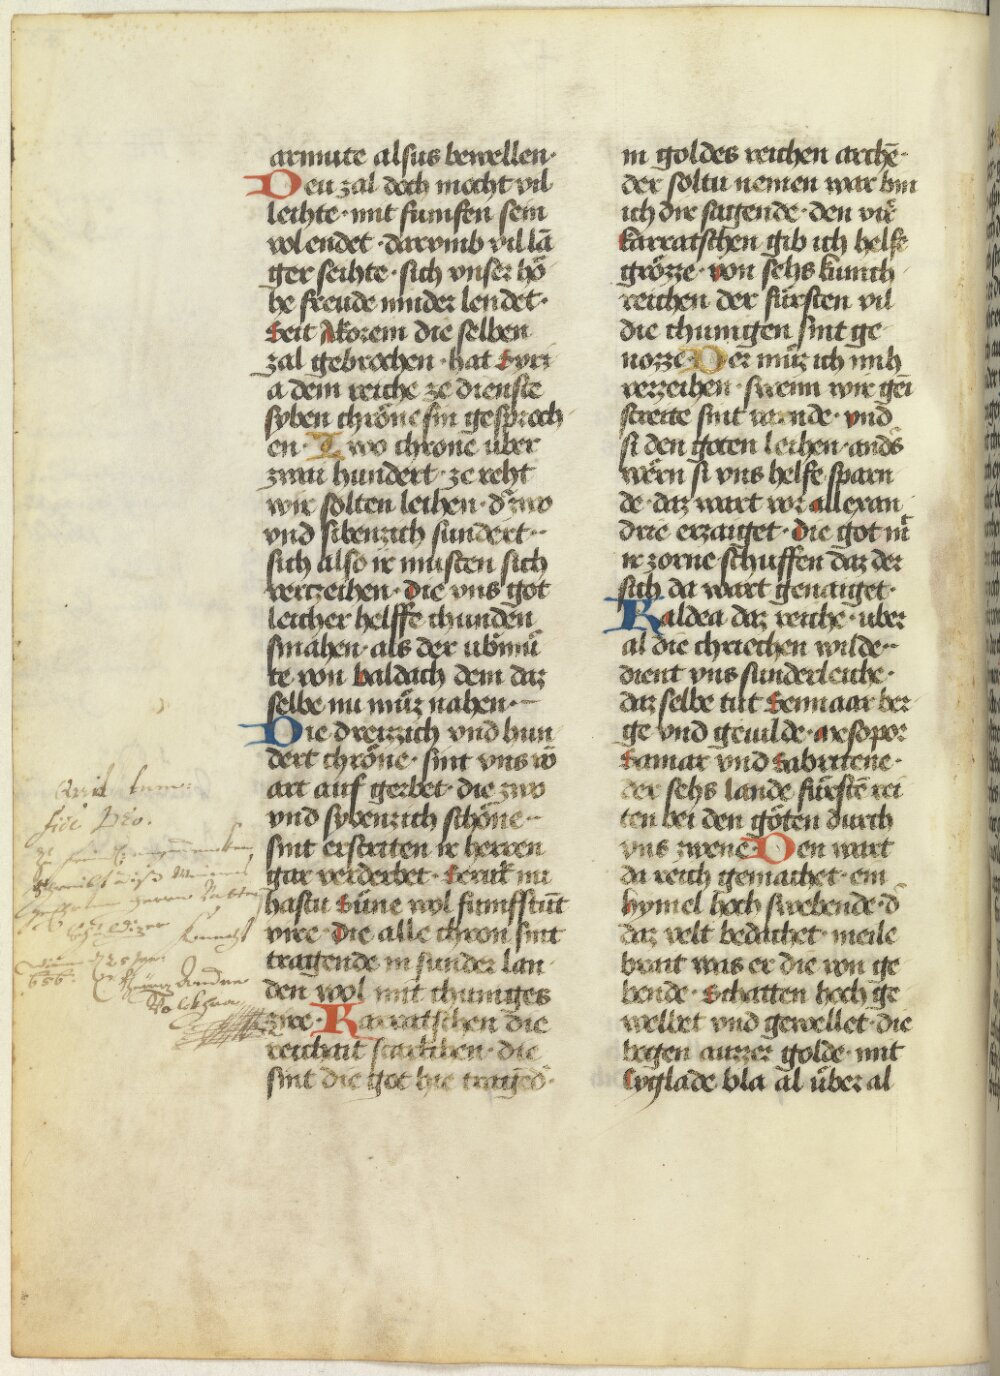 armute alsus bewellen·
Deu zal doch mocht vil
leihte· mit fumfen sein
volendet· darumb vil lā
ger seihte· sich vnser hö
he freude minder lendet·
Seit Akorem die selben
zal gebrochen· hat Syri
a dem reiche ze dienste
syben chröne sin gesproch
en· Two chrone uber
zwai hundert· ze reht
wir solten leihen· d zwo
vnd sibenzich sundert··
sich also ir musten sich
vertzeihen· die vns got
leicher helffe chunden
smahen· als der ubmü
te von baldach dem daz
selbe nu müz nahen·
Die dreizzich vnd hun
dert chröne· sint vns w
art auf gerbet· die zwo
vnd sybenzich schöne··
sint erstriten ir herren
gar verderbet· Seruk nu
hastu Süne wol fumfstūt
vire· die alle chron sint
tragende in sunder lan
den wol mit chuniges
zire· Karratschen die
reichait starkchen· die
sint die got hie tragēd·
Quid tum:
sice Deo.
in goldes reichen archē·
der soltu nemen war bin
ich dir sagende· den vir
karratschen gib ich helfe
grözze· von sehs kunich
reichen der fürsten vil
die chunigen sint ge
nozze· Der müz ich mih
verzeihen· swenn wir gei
streite sint varnde· vnd
si den goten leihen· ands
wern si vns helfe sparn
de· daz wart vor allexan
drie erzaiget· die got mt
ir zorne schuffen daz der
sich da wart genaiget·
Kaldea daz reiche· uber
al die chriechen wilde··
dient vns sunderleiche·
daz selbe tut Sennaar ber
ge vnd gevilde· mesopor
Samar vnd Sabriene·
der sehs lande fürstē rei
ten bei den göten durch
vns zwene· Den wart
da reich gemachet· ein
hymel hoch swebende· d
daz velt bedachet· meile
brait was er die von ge
bende· Schatten hoch ge
welbet vnd gewellet· die
bogen auzzer golde· mit
Cyglade bla al über al